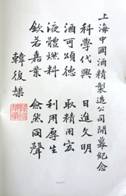 上海中國酒精製造公司開幕紀念
科學代興 日進文明
酒可頌德 取精用宏
液體燃料 利用厚生
欽若嘉業 翕然同聲
韓復榘